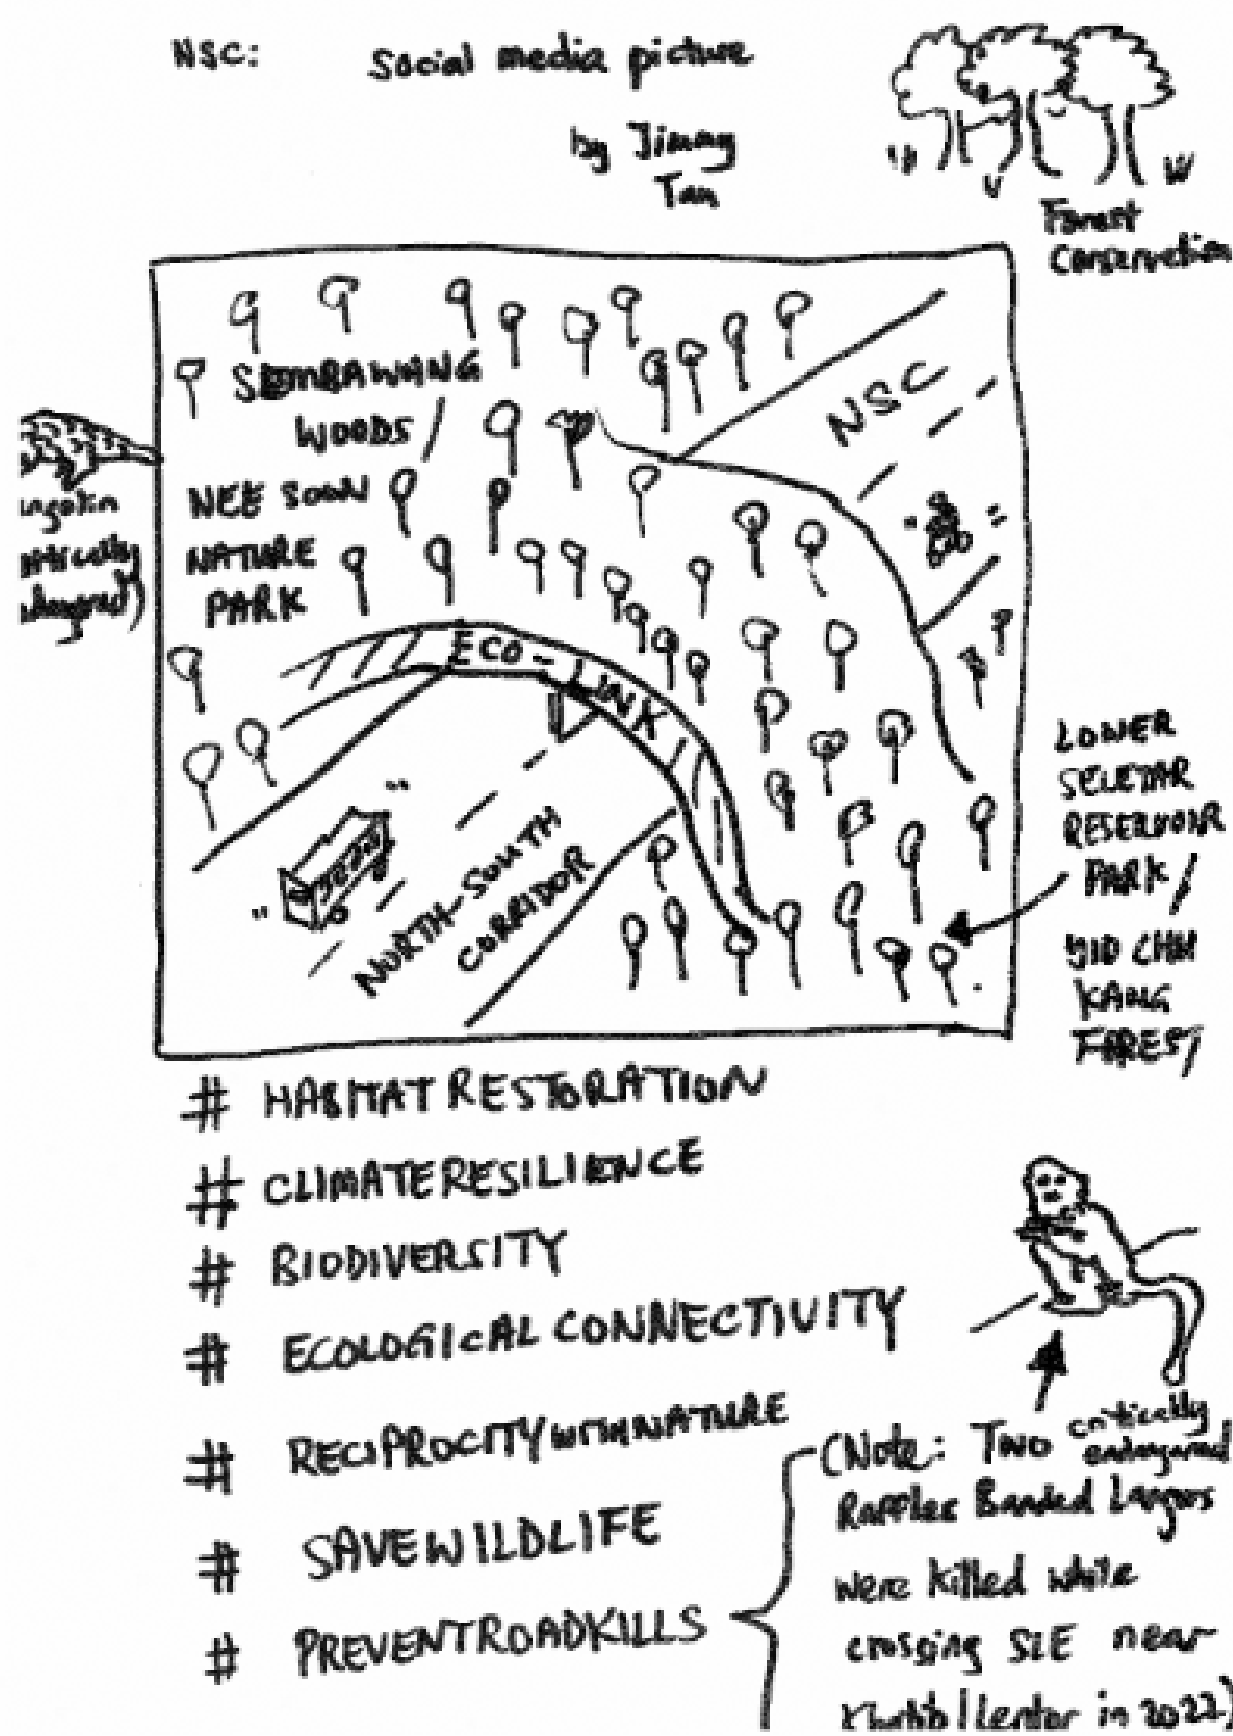 NSC: Social media picture
by Jimmy
Tan
Forest
Conservation
SEMBAWANG
WOODS /
NEE SOON
NATURE
PARK
NSC
ngolin
itically
dangered)
ECO-LINK
NORTH-SOUTH
CORRIDOR
LOWER
SELETAR
RESERVOIR
PARK /
YIO CHU
KANG
FOREST
# HABITATRESTORATION
# CLIMATERESILIENCE
# BIODIVERSITY
# ECOLOGICALCONNECTIVITY
# RECIPROCITYWITHNATURE
# SAVEWILDLIFE
# PREVENTROADKILLS
(Note: Two critically
endangered
Raffles Banded Langurs
were killed while
crossing SLE near
Khatib / Lentor in 2022)